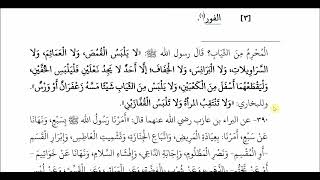 [٣] الفور(١)
المُحْرِمُ مِنَ الثِّيَابِ؟ قال رسول الله ﷺ: «لا يَلْبَسُ القُمُصَ، وَلا العَمَائِمَ، وَلا
السَّرَاوِيلاتِ، وَلا البَرَانِسَ، وَلا الخِفَافَ؛ إِلَّا أَحَدٌ لا يَجِدُ نَعْلَيْنِ فَلْيَلْبَسِ الخُفَّيْنِ،
وَلْيَقْطَعْهُمَا أَسْفَلَ مِنَ الكَعْبَيْنِ، وَلا يَلْبَسْ مِنَ الثِّيَابِ شَيْئًا مَسَّهُ زَعْفَرَانٌ أَوْ وَرْسٌ».
وللبخاري: «وَلا تَنْتَقِبُ المَرْأَةُ وَلا تَلْبَسُ القُفَّازَيْنِ».
٣٩٠- عن البراء بن عازب رضي الله عنهما قال: أَمَرَنَا رَسُولُ اللهِ ﷺ بِسَبْعٍ، وَنَهَانَا
عَنْ سَبْعٍ: أَمَرَنَا: بِعِيَادَةِ المَرِيضِ، وَاتِّبَاعِ الجَنَازَةِ، وَتَشْمِيتِ العَاطِسِ، وَإِبْرَارِ القَسَمِ
أَوِ المُقْسِمِ، وَنَصْرِ المَظْلُومِ، وَإِجَابَةِ الدَّاعِي، وَإِفْشَاءِ السَّلامِ، وَنَهَانَا عَنْ خَوَاتِيمَ -